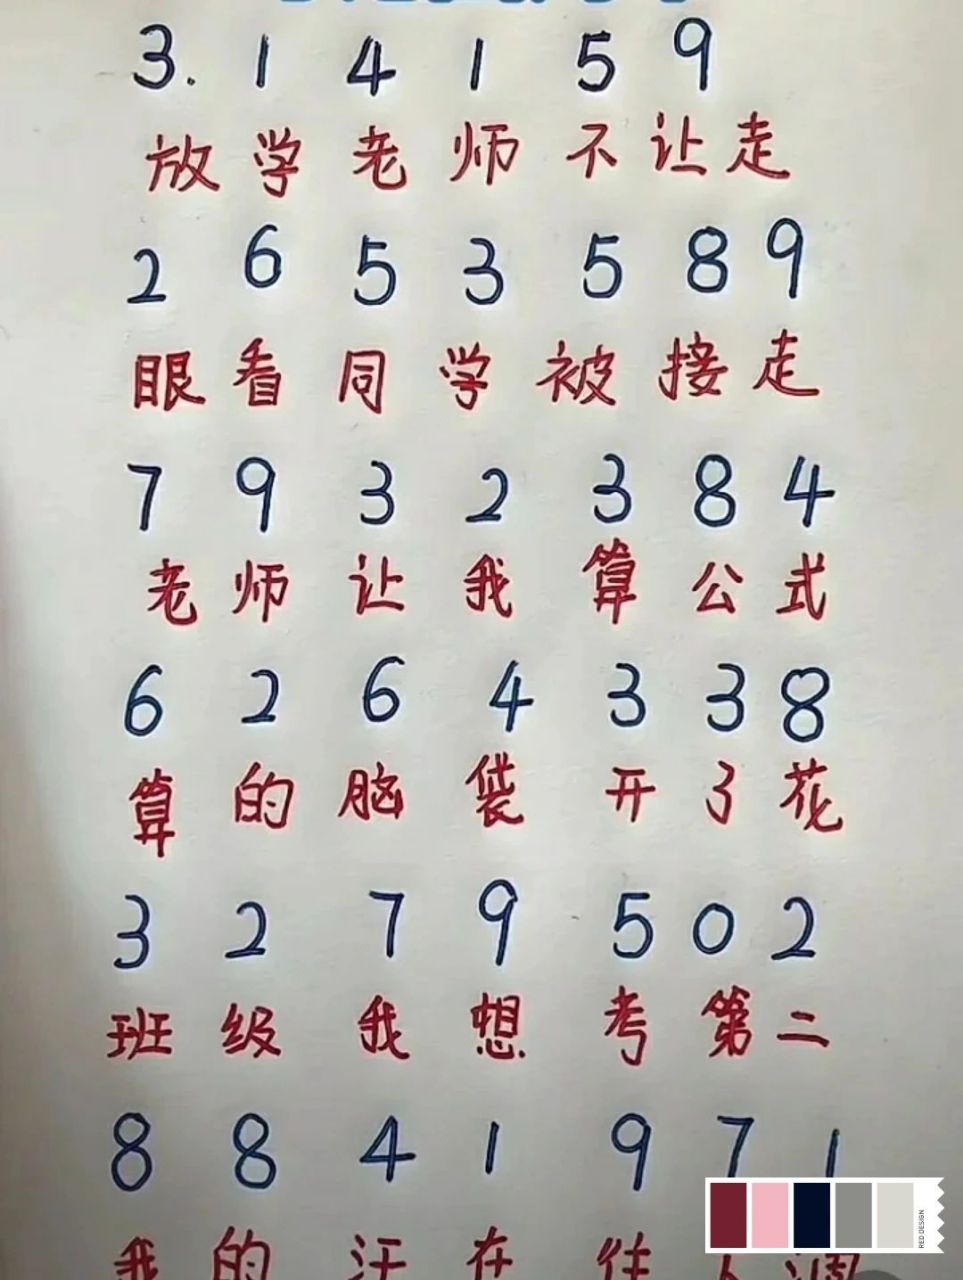 3. 1 4 1 5 9
放学老师不让走
2 6 5 3 5 8 9
眼看同学被接走
7 9 3 2 3 8 4
老师让我算公式
6 2 6 4 3 3 8
算的脑袋开了花
3 2 7 9 5 0 2
班级我想考第二
8 8 4 1 9 7 1
我的汗在往下
RED DESIGN